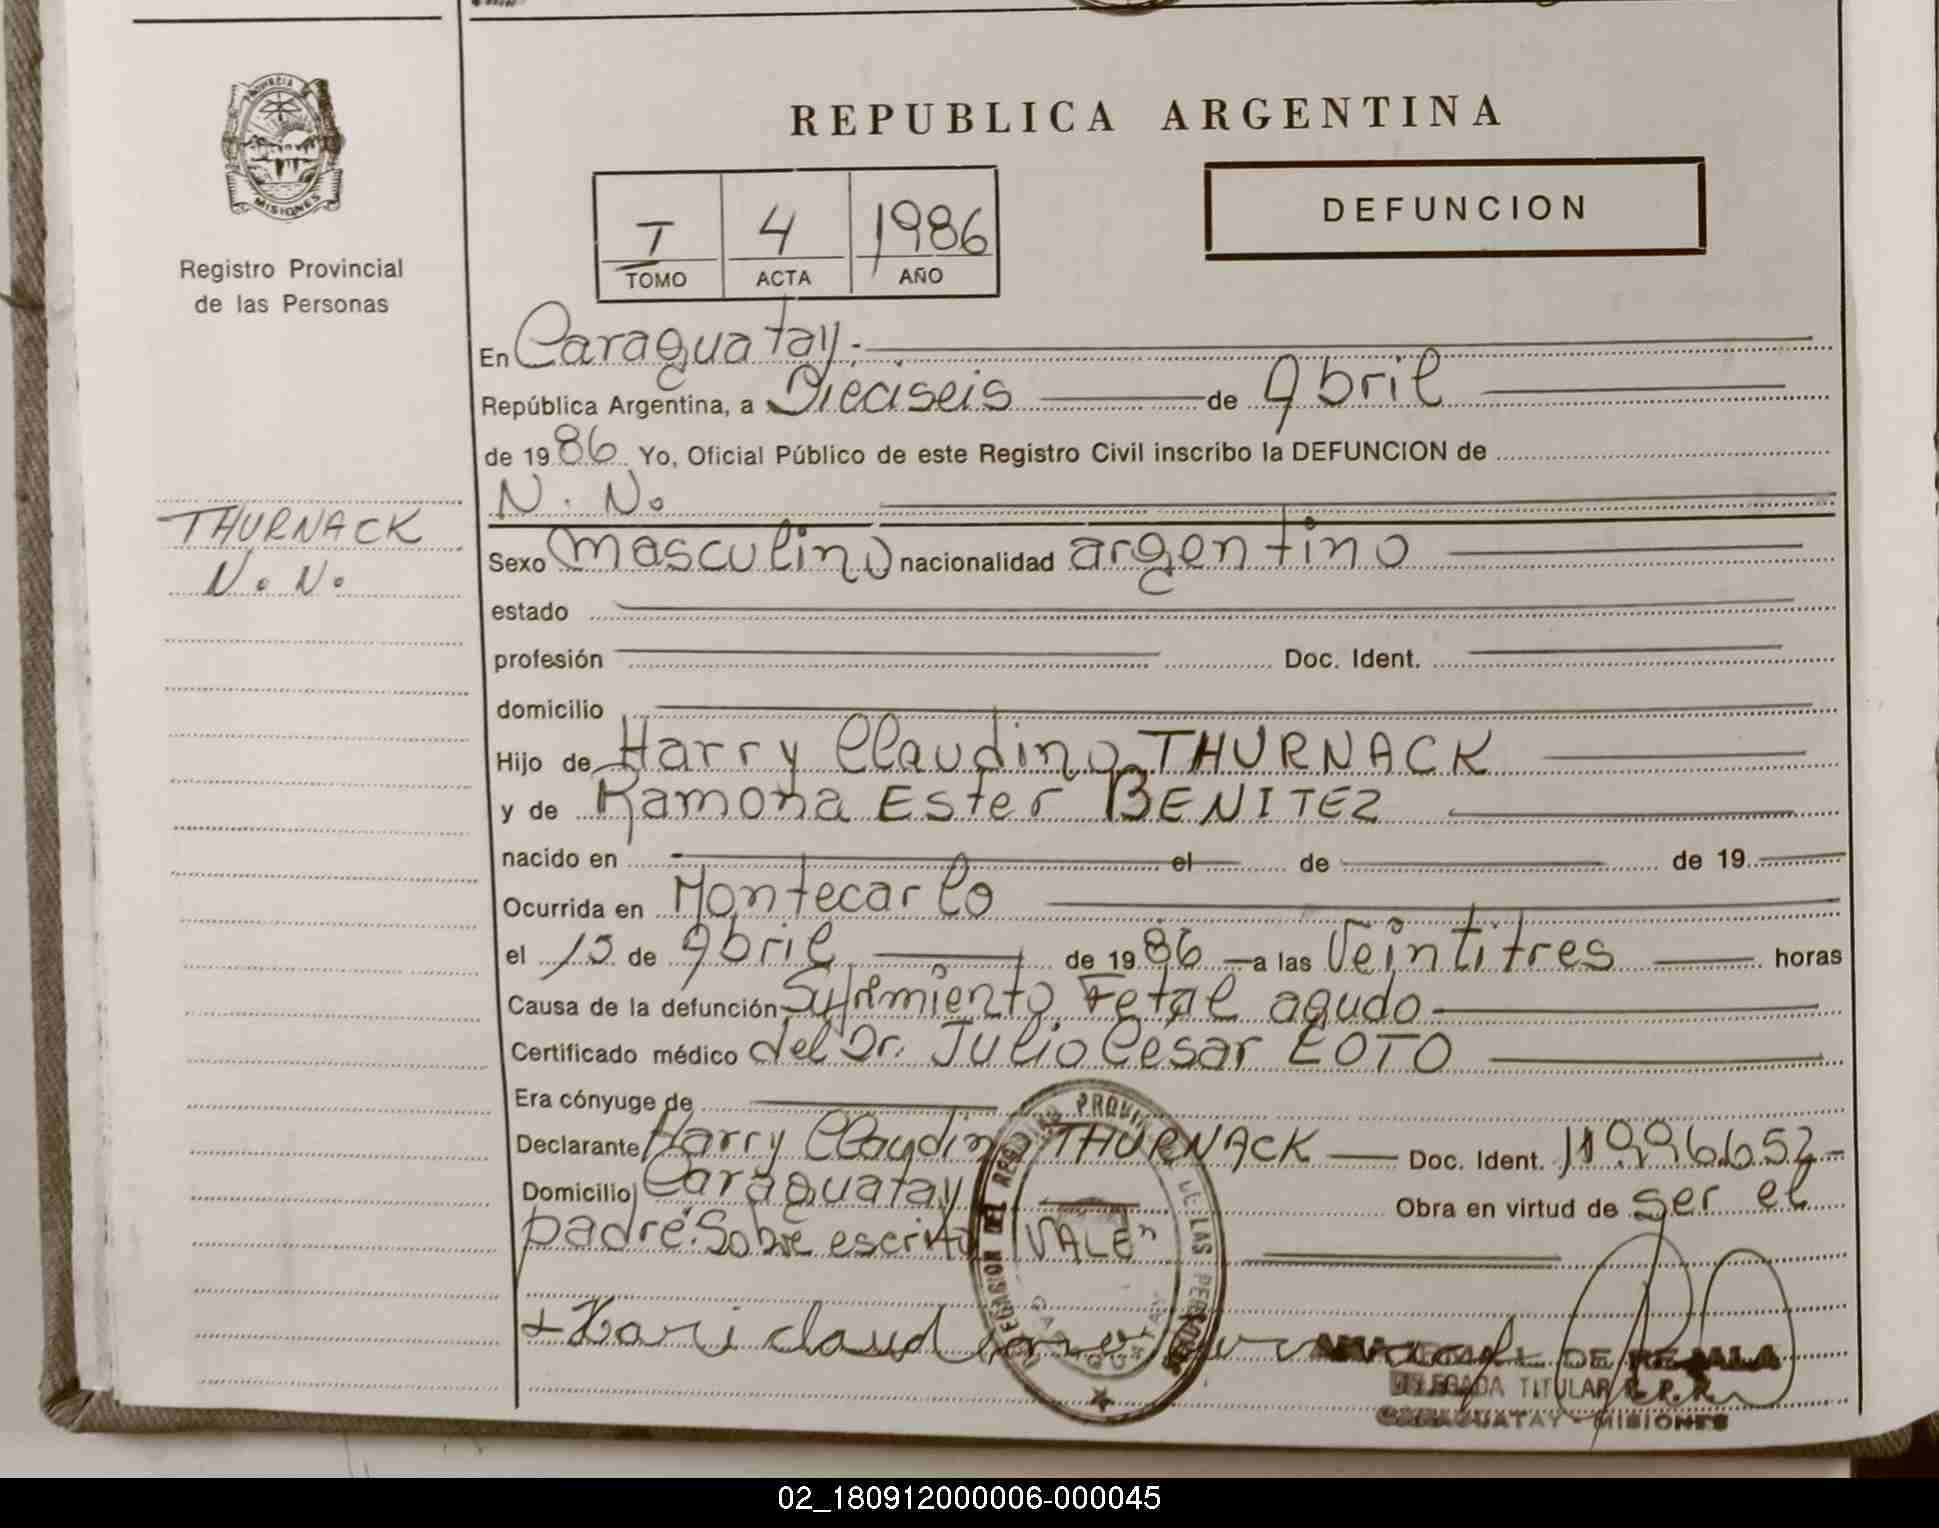 REPUBLICA ARGENTINA
PROVINCIA DE
MISIONES
Registro Provincial
de las Personas
T 4 1986
TOMO ACTA AÑO
DEFUNCION
En Caraguatay.
República Argentina, a Dieciseis de Abril
de 1986 Yo, Oficial Público de este Registro Civil inscribo la DEFUNCION de
N. N.
THURNACK
N. N.
Sexo masculino nacionalidad argentino
estado
profesión Doc. Ident.
domicilio
Hijo de Harry Claudino THURNACK
y de Ramona Ester BENITEZ
nacido en el de de 19
Ocurrida en Montecarlo
el 15 de Abril de 1986 a las Veintitres horas
Causa de la defunción Sufrimiento Fetal agudo
Certificado médico del Dr. Julio Cesar
Era cónyuge de
Declarante Harry Claudino THURNACK Doc. Ident. 11996652
Domicilio Caraguatay Obra en virtud de ser el
padre. Sobre escrito "VALE"
DELEGACION DEL REGISTRO PROVINCIAL DE LAS PERSONAS
CARAGUATAY
DE REJALA
DELEGADA TITULAR R. P. P.
CARAGUATAY - MISIONES
02_180912000006-000045